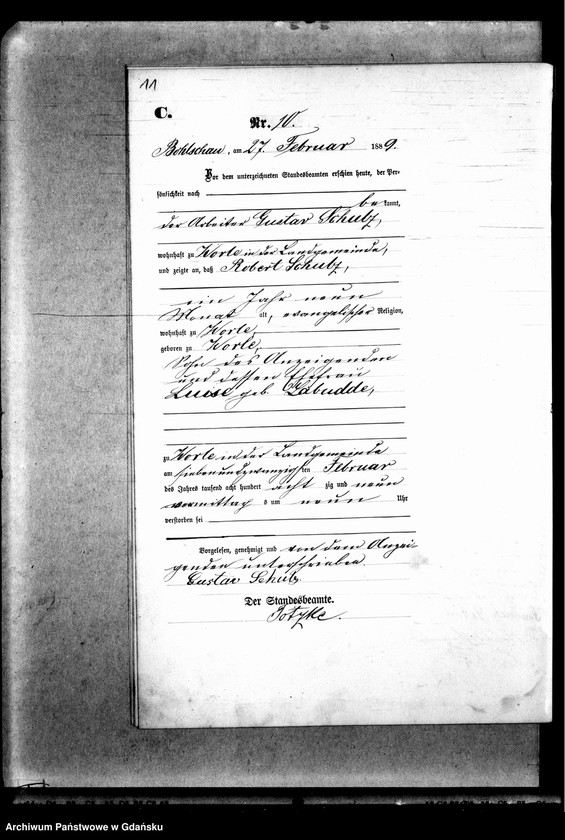 11
C.
Nr. 10.
Bohlschau, am 27. Februar 1889.
Vor dem unterzeichneten Standesbeamten erschien heute, der Per-
sönlichkeit nach
bekannt,
der Arbeiter Gustav Schulz,
wohnhaft zu Worle in der Landgemeinde,
und zeigte an, daß Robert Schulz,
ein Jahr neun
Monat alt, evangelischer Religion,
wohnhaft zu Worle,
geboren zu Worle,
Sohn des Anzeigenden
und dessen Ehefrau
Luise geb. Labudde,
zu Worle in der Landgemeinde
am siebenundzwanzigsten Februar
des Jahres tausend acht hundert achtzig und neun
vormittags um neun Uhr
verstorben sei
Vorgelesen, genehmigt und von dem Anzei-
genden unterschrieben.
Gustav Schulz.
Der Standesbeamte.
Archiwum Państwowe w Gdańsku